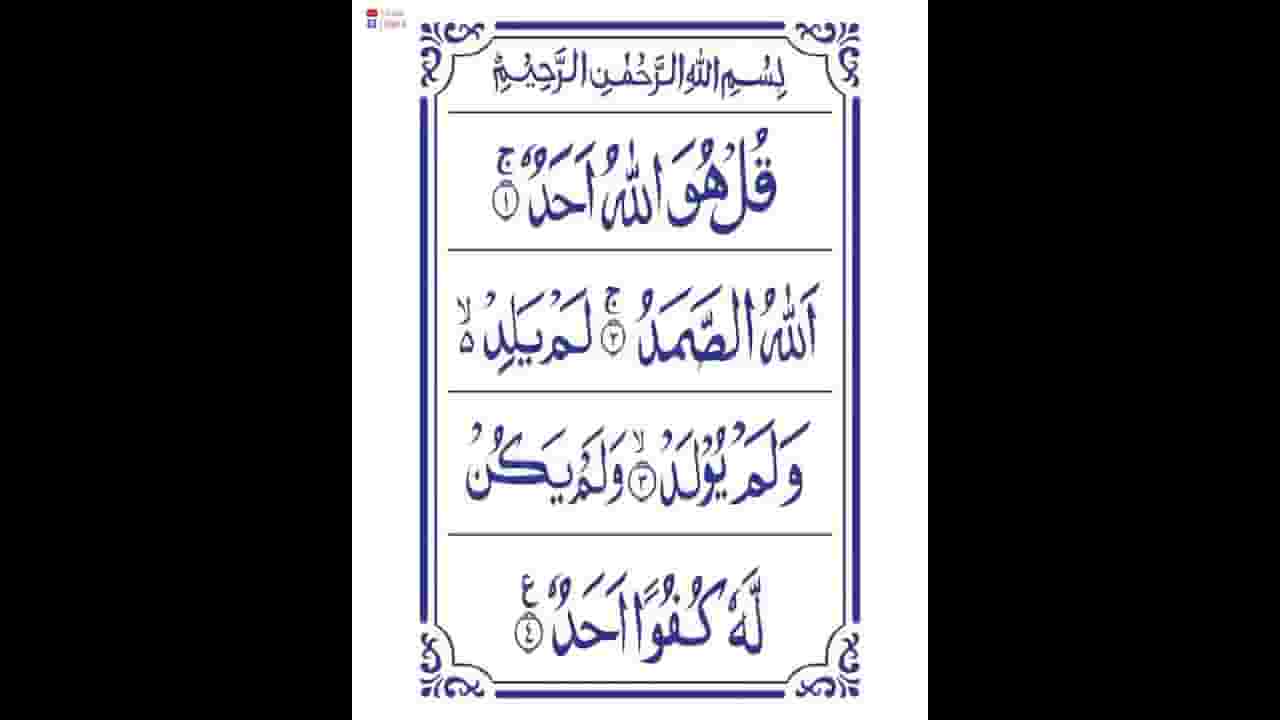 بِسْمِ اللهِ الرَّحْمٰنِ الرَّحِيْمِ
قُلْ هُوَ اللهُ اَحَدٌ ۚ ۝١
اَللهُ الصَّمَدُ ۚ ۝٢ لَمْ يَلِدْ ۙ۵
وَلَمْ يُوْلَدْ ۙ ۝٣ وَلَمْ يَكُنْ
لَّهٗ كُفُوًا اَحَدٌ ۝٤ ع